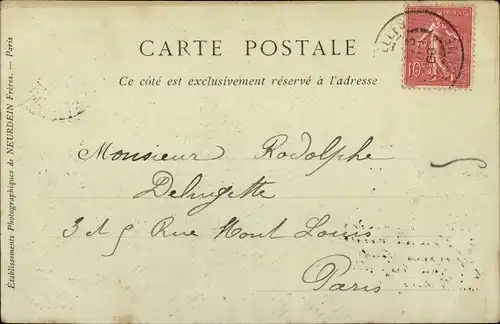 CARTE POSTALE
Ce côté est exclusivement réservé à l'adresse
10c
Monsieur Rodolphe
3 et 5 Rue Mont Louis
Paris
Établissements Photographiques de NEURDEIN Frères. — Paris